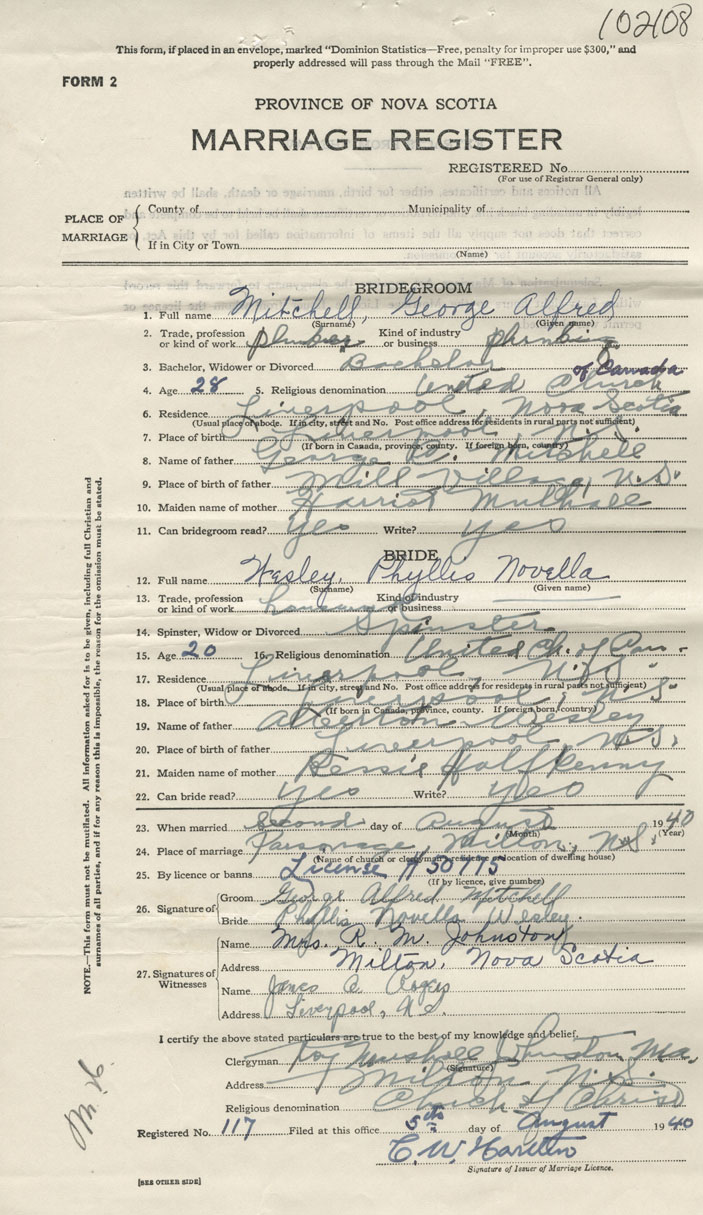 102108
This form, if placed in an envelope, marked "Dominion Statistics—Free, penalty for improper use $300," and
properly addressed will pass through the Mail "FREE".
FORM 2
PROVINCE OF NOVA SCOTIA
MARRIAGE REGISTER
REGISTERED No.
(For use of Registrar General only)
PLACE OF MARRIAGE
County of Municipality of
If in City or Town
(Name)
BRIDEGROOM
1. Full name Mitchell, George Alfred
(Surname) (Given name)
2. Trade, profession or kind of work plumber Kind of industry or business plumbing
3. Bachelor, Widower or Divorced Bachelor
4. Age 28 5. Religious denomination United Church of Canada
6. Residence Liverpool, Nova Scotia
(Usual place of abode. If in city, street and No. Post office address for residents in rural parts not sufficient)
7. Place of birth Liverpool N.S.
(If born in Canada, province, county. If foreign born, country)
8. Name of father George E. Mitchell
9. Place of birth of father Mill Village, N.S.
10. Maiden name of mother Harriet Mulhall
11. Can bridegroom read? yes Write? yes
BRIDE
12. Full name Wesley, Phyllis Novella
(Surname) (Given name)
13. Trade, profession or kind of work Kind of industry or business
14. Spinster, Widow or Divorced Spinster
15. Age 20 16. Religious denomination United Ch. of Can-
17. Residence Liverpool, N.S.
(Usual place of abode. If in city, street and No. Post office address for residents in rural parts not sufficient)
18. Place of birth Liverpool N.S.
(If born in Canada, province, county. If foreign born, country)
19. Name of father Wesley
20. Place of birth of father Liverpool N.S.
21. Maiden name of mother Bessie Halfkenny
22. Can bride read? yes Write? yes
23. When married Second day of August 1940
(Month) (Year)
24. Place of marriage Parsonage Milton, N.S.
(Name of church or clergyman's residence or location of dwelling house)
25. By licence or banns License # 50775
(If by licence, give number)
26. Signature of
Groom George Alfred Mitchell
Bride Phyllis Novella Wesley.
27. Signatures of Witnesses
Name Mrs. R. M. Johnston
Address Milton, Nova Scotia
Name James Rogers
Address Liverpool, N.S.
I certify the above stated particulars are true to the best of my knowledge and belief.
Clergyman Roy Marshall Johnston M.A.
(Signature)
Address Milton N.S.
Religious denomination Church of Christ
Registered No. 117 Filed at this office 5th day of August 1940
C. W.
Signature of Issuer of Marriage Licence.
[SEE OTHER SIDE]
NOTE.—This form must not be mutilated. All information asked for is to be given, including full Christian and
surnames of all parties, and if for any reason this is impossible, the reason for the omission must be stated.